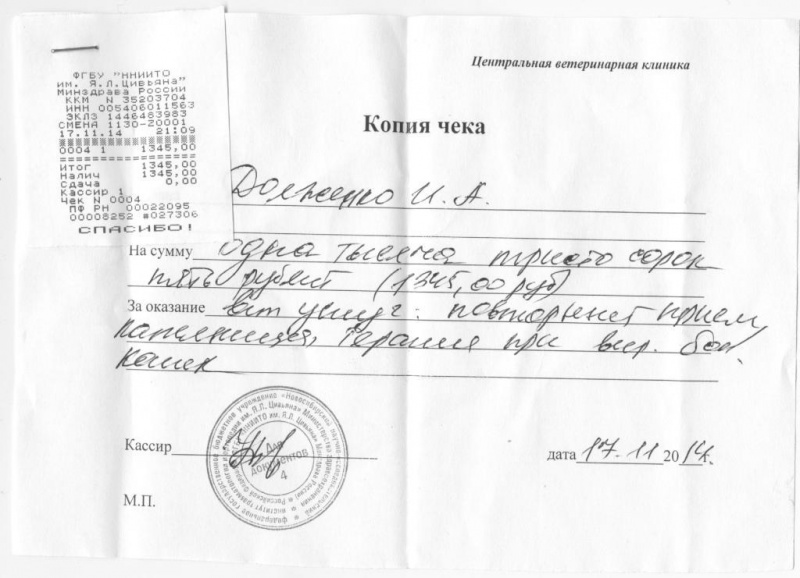 ФГБУ "ННИИТО
им. Я.Л.Цивьяна"
Минздрава России
ККМ N 35203704
ИНН 005406011563
ЭКЛЗ 1446483983
СМЕНА 1130-Z0001
17.11.14 21:09
0004 1 1345,00
ИТОГ 1345,00
Налич 1345,00
Сдача 0,00
Кассир 1
Чек N 0004
ПФ РН 00022095
00008252 #027306
СПАСИБО!
Центральная ветеринарная клиника
Копия чека
Долженко И. А.
На сумму одна тысяча триста сорок
пять рублей (1345,00 руб)
За оказание вет услуг: повторный прием
пациента, терапия при вир. бол.
кошек
Кассир
Для
документов
4
дата 17.11 2014г.
М.П.